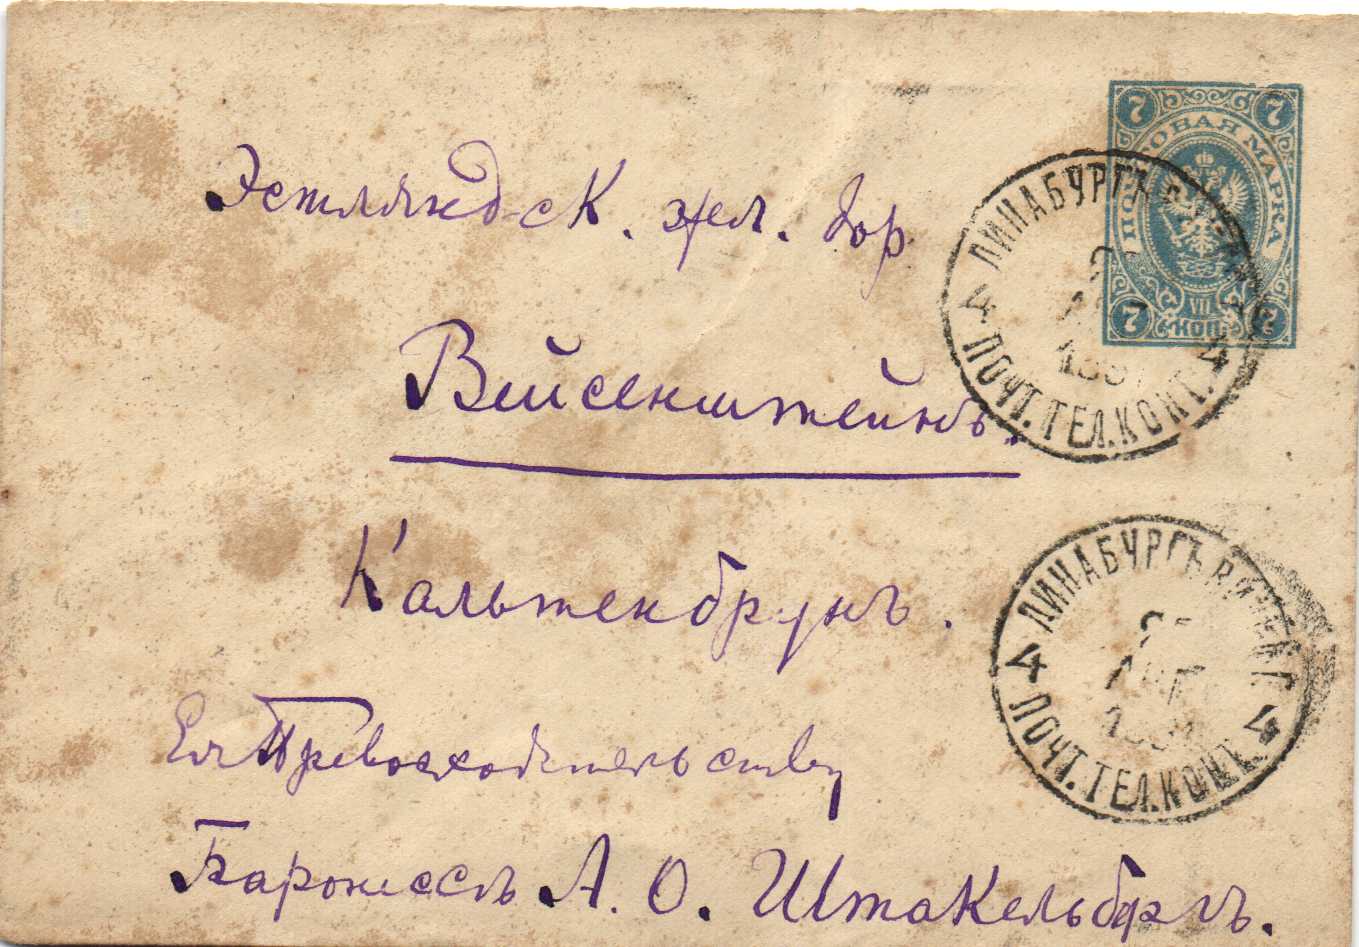 Эстляндск. жел. дор
Вейсенштейнъ.
Кальтенбрунъ.
Ея Превосходительству
Баронессѣ А. О. Штакельбергъ.
7 7
ПОЧТОВАЯ МАРКА
VII
КОП.
7
ДИНАБУРГЪ
4 4
ПОЧТ. ТЕЛ. КОНТ.
ДИНАБУРГЪ
АВГ
4 4
ПОЧТ. ТЕЛ. КОНТ.